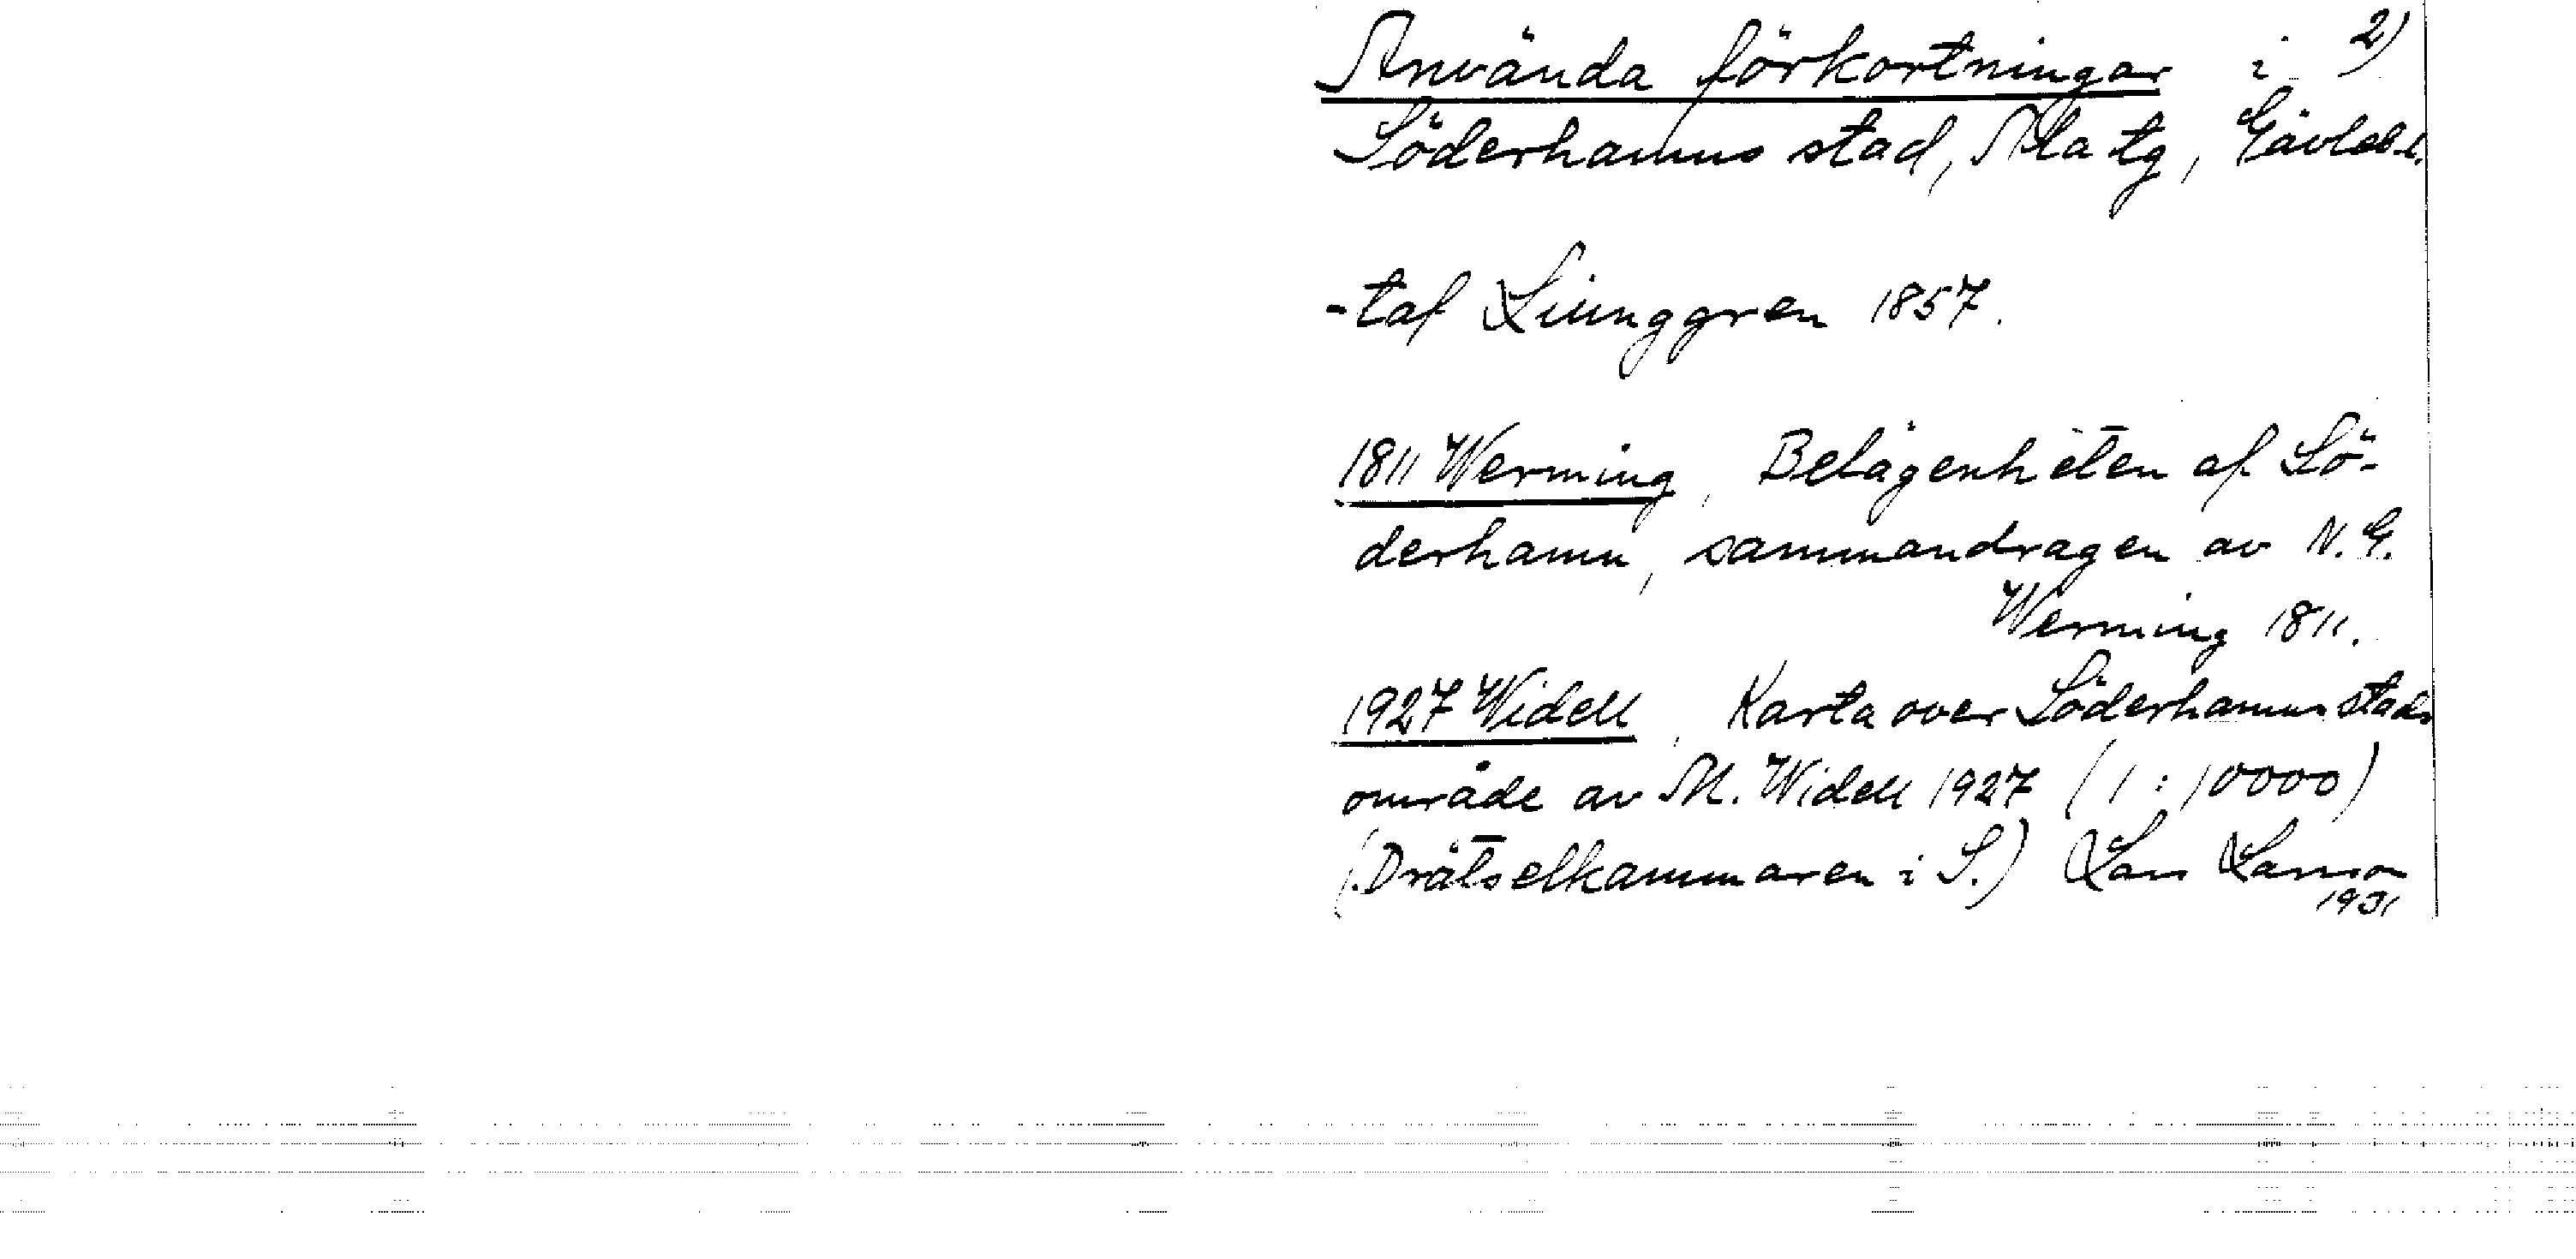 Använda förkortningar i 2)
Söderhamns stad, Ala tg, Gävlebl.
-taf Liunggren 1857.
1811 Werming, Belägenheten af Sö-
derhamn, sammandragen av N. G.
Werming 1811.
1927 Widell, Karta över Söderhamns stads
område av M. Widell 1927 (1:10000)
(Drätselkammaren i S.) Lars
1931